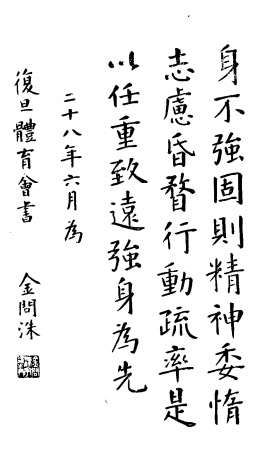 身不強固則精神委惰
志慮昏瞀行動疏率是
以任重致遠強身為先
二十八年六月為
復旦體育會書
金問洙